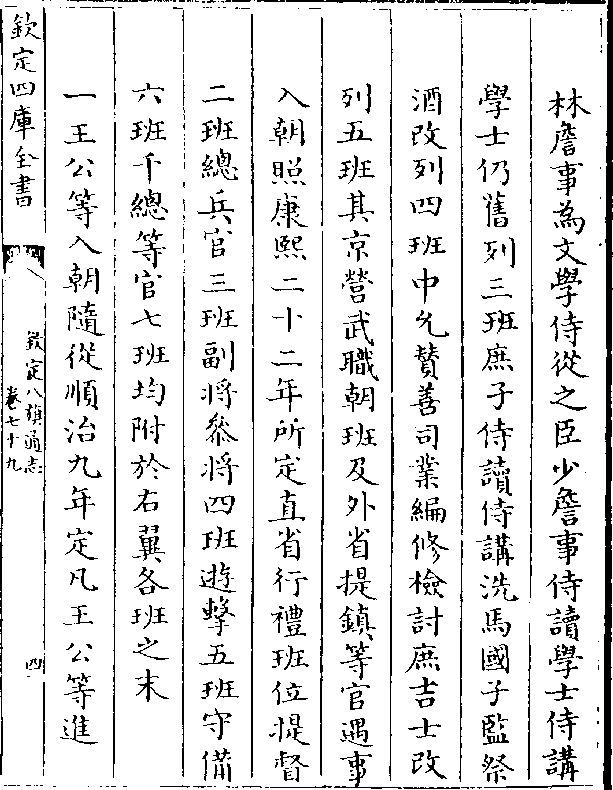 林詹事為文學侍從之臣少詹事侍讀學士侍講
學士仍舊列三班庶子侍讀侍講洗馬國子監祭
酒改列四班中允贊善司業編修檢討庶吉士改
列五班其京營武職朝班及外省提鎮等官遇事
入朝照康熙二十二年所定直省行禮班位提督
二班總兵官三班副將叅將四班遊擊五班守備
六班千總等官七班均附於右翼各班之末
一王公等入朝隨從順治九年定凡王公等進
欽定四庫全書
欽定八旗通志
卷七十九
四